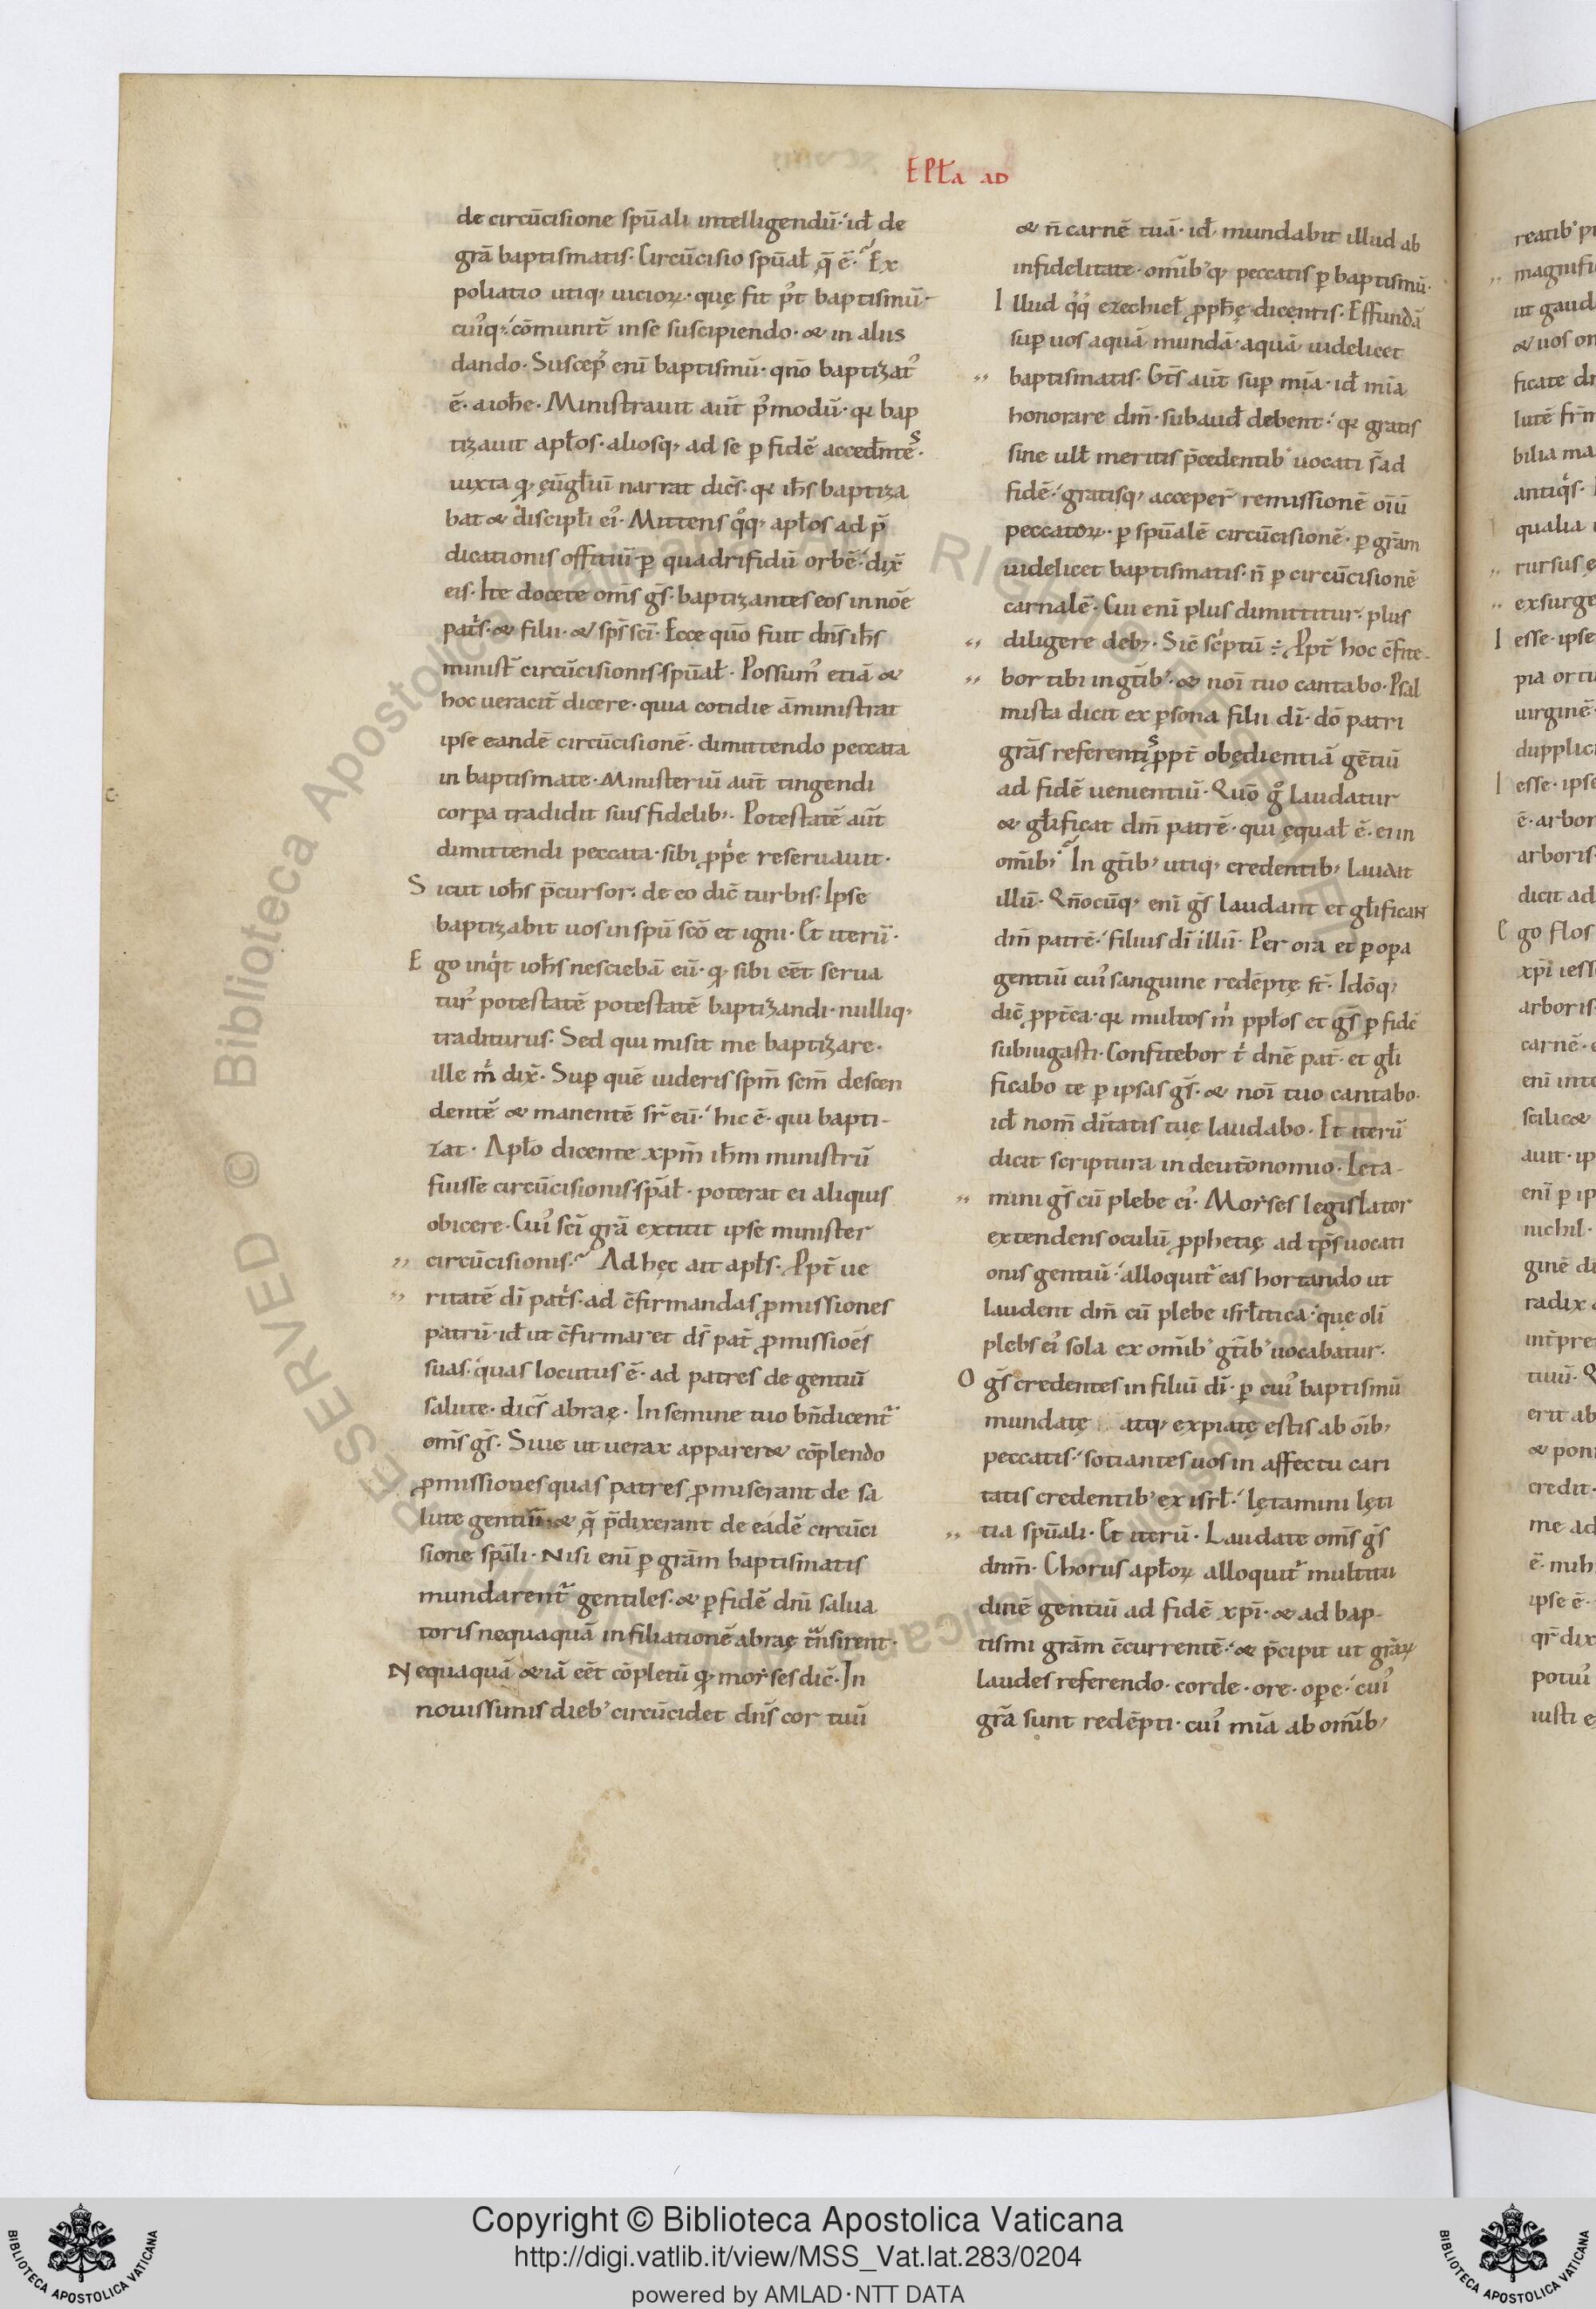 EPŁa AD
de circūcisione spūali intelligendū· id̄ de
grā baptismatis· Circūcisio spūał q̄ ē· Ex
poliatio utiq; uicioꝝ· quę fit p̱t baptismū·
cui᾽q; cōmunit̄ in se suscipiendo· & in aliis
dando· Suscep̄ enī baptismū· qn̄o baptizat᾽
ē· a ioh̄e· Ministrauit aūt p᾽modū· qꝛ bap
tizauit apl̄os· aliosq; ad se ꝑ fidē acced̄nte᷒·
iuxta qꝫ ęūgl̄iū narrat dic̄s· qꝛ ih̄s baptiza
bat & discipl̄i ei᾽· Mittens qͦq; apl̄os ad p̄
dicationis offitiū· ꝑ quadrifidū orbē· dix̄
eis· Ite docete om̄s gs̄· baptizantes eos in nōē
pat͛s· & filii· & sp̄s sc̄i· Ecce quō fuit dn̄s ih̄s
minist̄ circūcisionis spūał· Possum᾽ etiā &
hoc ueracit̄ dicere· quia cotidie āministrat
ipse eandē circūcisionē· dimittendo peccata
in baptismate· Ministeriū aūt tingendi
corꝑa tradidit suis fidelib;· Potestatē aūt
dimittendi peccata· sibi ꝓp͛e reseruauit·
Sicut ioh̄s p̄cursor· de eo dic̄ turbis· Ipse
baptizabit uos in spū scō et igni· Et iterū·
Ego inqͥt ioh̄s nesciebā eū· qꝫ sibi eēt serua
tur᾽ potestatē potestatē baptizandi· nulliq;
traditurus· Sed qui misit me baptizare·
ille mͥ dix̄· Suꝑ quē uideris spm̄ scm̄ descen
dentē & manentē sr̄ eū· hic ē· qui bapti-
zat· Apl̄o dicente xpm̄ ih̄m ministrū
fuisse circūcisionis sp̄ał· poterat ei aliquis
obicere· Cui᾽ sc̄i grā extitit ipse minister
circūcisionis· Ad hęc ait apl̄s· Ꝓpt̄ ue
ritatē dī pat͛s· ad c̄firmandas ꝓmissiones
patrū· id̄ ut c̄firmaret ds̄ pat̄ ꝓmissiōēs
suas· quas locutus ē· ad patres de gentiū
salute· dic̄s abraę· In semine tuo bn̄dicent᷑
om̄s gs̄· Siue ut uerax apparer& cōplendo
ꝓmissiones quas patres ꝓmiserant de sa
lute gentiū· & q̄ p̄dixerant de eādē circūci
sione spūli· Nisi enī ꝑ grām baptismatis
mundarent᷑ gentiles· & ꝑ fidē dn̄i salua
toris nequaquā in filiationē abraę tn̄sirent·
Nequaquā &iā eēt cōpletū qꝫ moyses dic̄· In
nouissimis dieb᾽ circūcidet dn̄s cor tuū
& n̄ carnē tuā· id̄ mundabit illud ab
infidelitate· omīb᾽q; peccatis ꝑ baptismū·
Illud qͦqͦ ezechieł ꝓph̄ę dicentis· Effundā
suꝑ uos aquā mundā· aquā uidelicet
baptismatis· Gt̄s aūt suꝑ mīa· id̄ mīa
honorare dm̄· subaud̄ debent· qꝛ gratis
sine ull̄ meritis p̄cedentib᾽ uocati s̄ ad
fidē· gratisq; acceper̄ remissionē oīū
peccatoꝝ· ꝑ spūalē circūcisionē· ꝑ grām
uidelicet baptismatis· n̄ ꝑ circūcisionē
carnalē· Cui enī plus dimittitur· plus
diligere debꝫ· Sic̄ sc͛ptū ÷ Ꝓpt̄ hoc c̄fite-
bor tibi in gt̄ib᾽· & noī tuo cantabo· Psal
mista dicit ex ꝑsona filii dī· dō patri
grās referenti᷒ ꝓpt̄ obędientiā gētiū
ad fidē uenientiū· Quō gͦ laudatur
& gl̄ificat dm̄ patrē· qui ęquał ē· ei in
omīb;· In gt̄ib; utiq; credentib; laudat
illū· Qn̄ocūq; enī gs̄ laudant et gl̄ificaɴᴛ
dm̄ patrē· filius dī illū· Per ora et ꝑ oꝑa
gentiū cui᾽ sanguine redēptę st̄· Idōq;
dic̄ ꝓpt̄ea· qꝛ multos mͥ ppl̄os et gs̄ ꝑ fidē
subiugasti· Confitebor tͥ dn̄e pat̄· et gl̄i
ficabo te ꝑ ipsas gs̄· & noī tuo cantabo·
id̄ nom̄ dīītatis tuę laudabo· Et iterū
dicit scriptura in deut̄onomio· Lęta-
mini gs̄ cū plebe ei᾽· Moyses legislator
extendens oculū ꝓphetię ad tp̄s uocati
onis gentiū· alloquit᷑ eas hortando ut
laudent dm̄ cū plebe isrl̄itica· quę olī
plebs ei᾽ sola ex omīb᾽ gt̄ib᾽ uocabatur·
O gs̄ credentes in filiū dī· ꝑ cui᾽ baptismū
mundatę atq; expiatę estis ab oīb;
peccatis· sotiantes uos in affectu cari
tatis credentib᾽ ex isrł· lętamini lęti
tia spūali· Et iterū· Laudate om̄s gs̄
dnm̄· Chorus apl̄oꝝ alloquit᷑ multitu
dinē gentiū ad fidē xpī· & ad bap-
tismi grām c̄currentē· & p̄cipit ut grāꝝ
laudes referendo· corde· ore· oꝑe· cui᾽
grā sunt redēpti· cui᾽ mīa ab omīb;
Copyright © Biblioteca Apostolica Vaticana
http://digi.vatlib.it/view/MSS_Vat.lat.283/0204
powered by AMLAD·NTT DATA